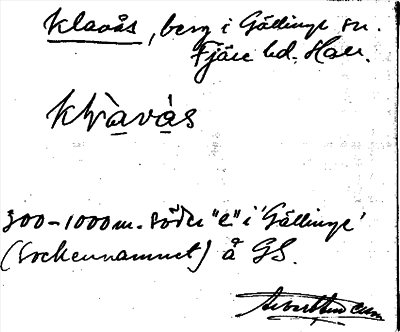 Klavås, berg i Gällinge sn.
Fjäre hd. Hall.
300-1000 m. söder "e" i 'Gällinge'
(sockennamnet) å GS.